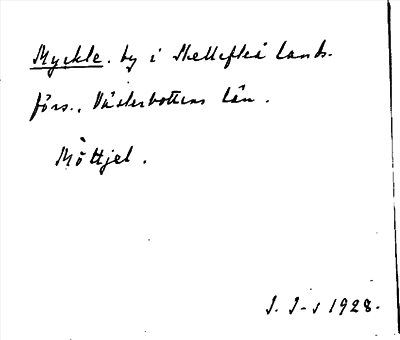 Myckle. by i Skellefteå lands-
förs., Västerbottens län.
Möttjel.
J. J-s 1928.